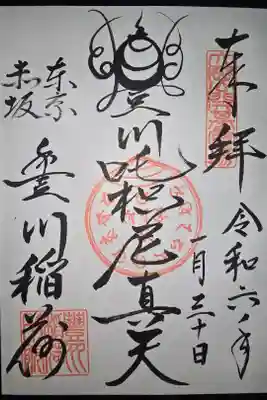 奉拝
令和六年
一月三十日
豊川吒枳尼真天
東京
赤坂
豊川稲荷